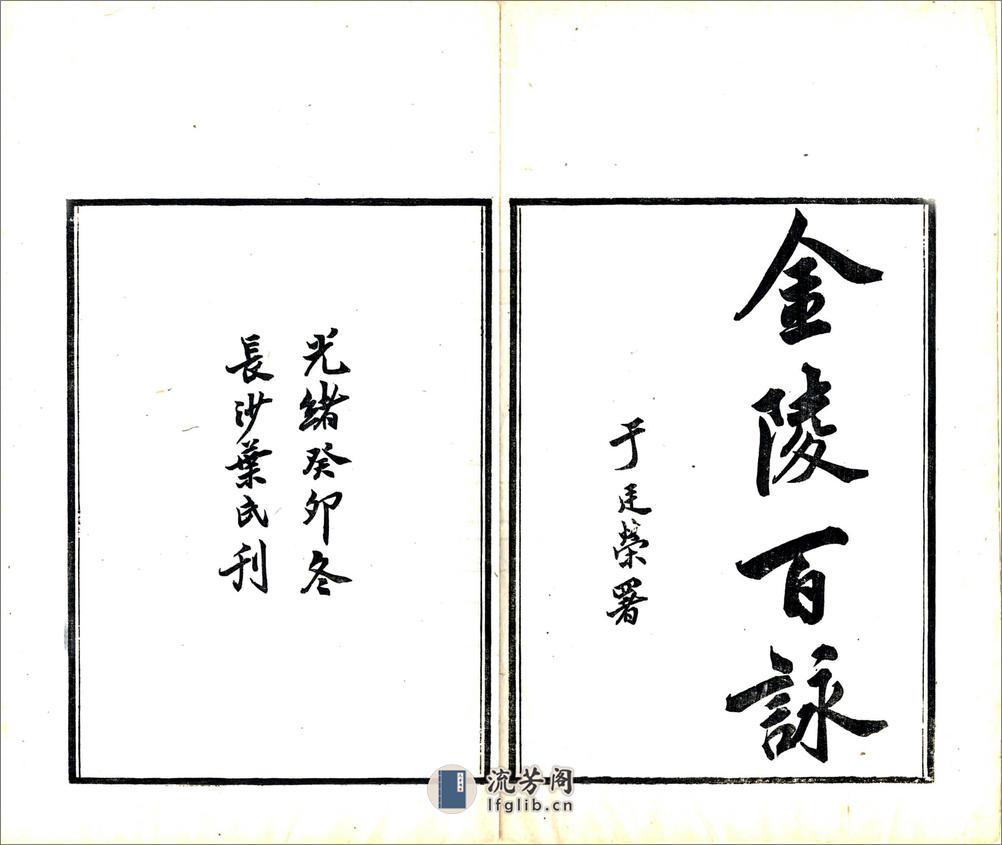 金陵百詠
于廷榮署
光緒癸卯冬
長沙葉氏刊
流芳阁
lfglib.cn